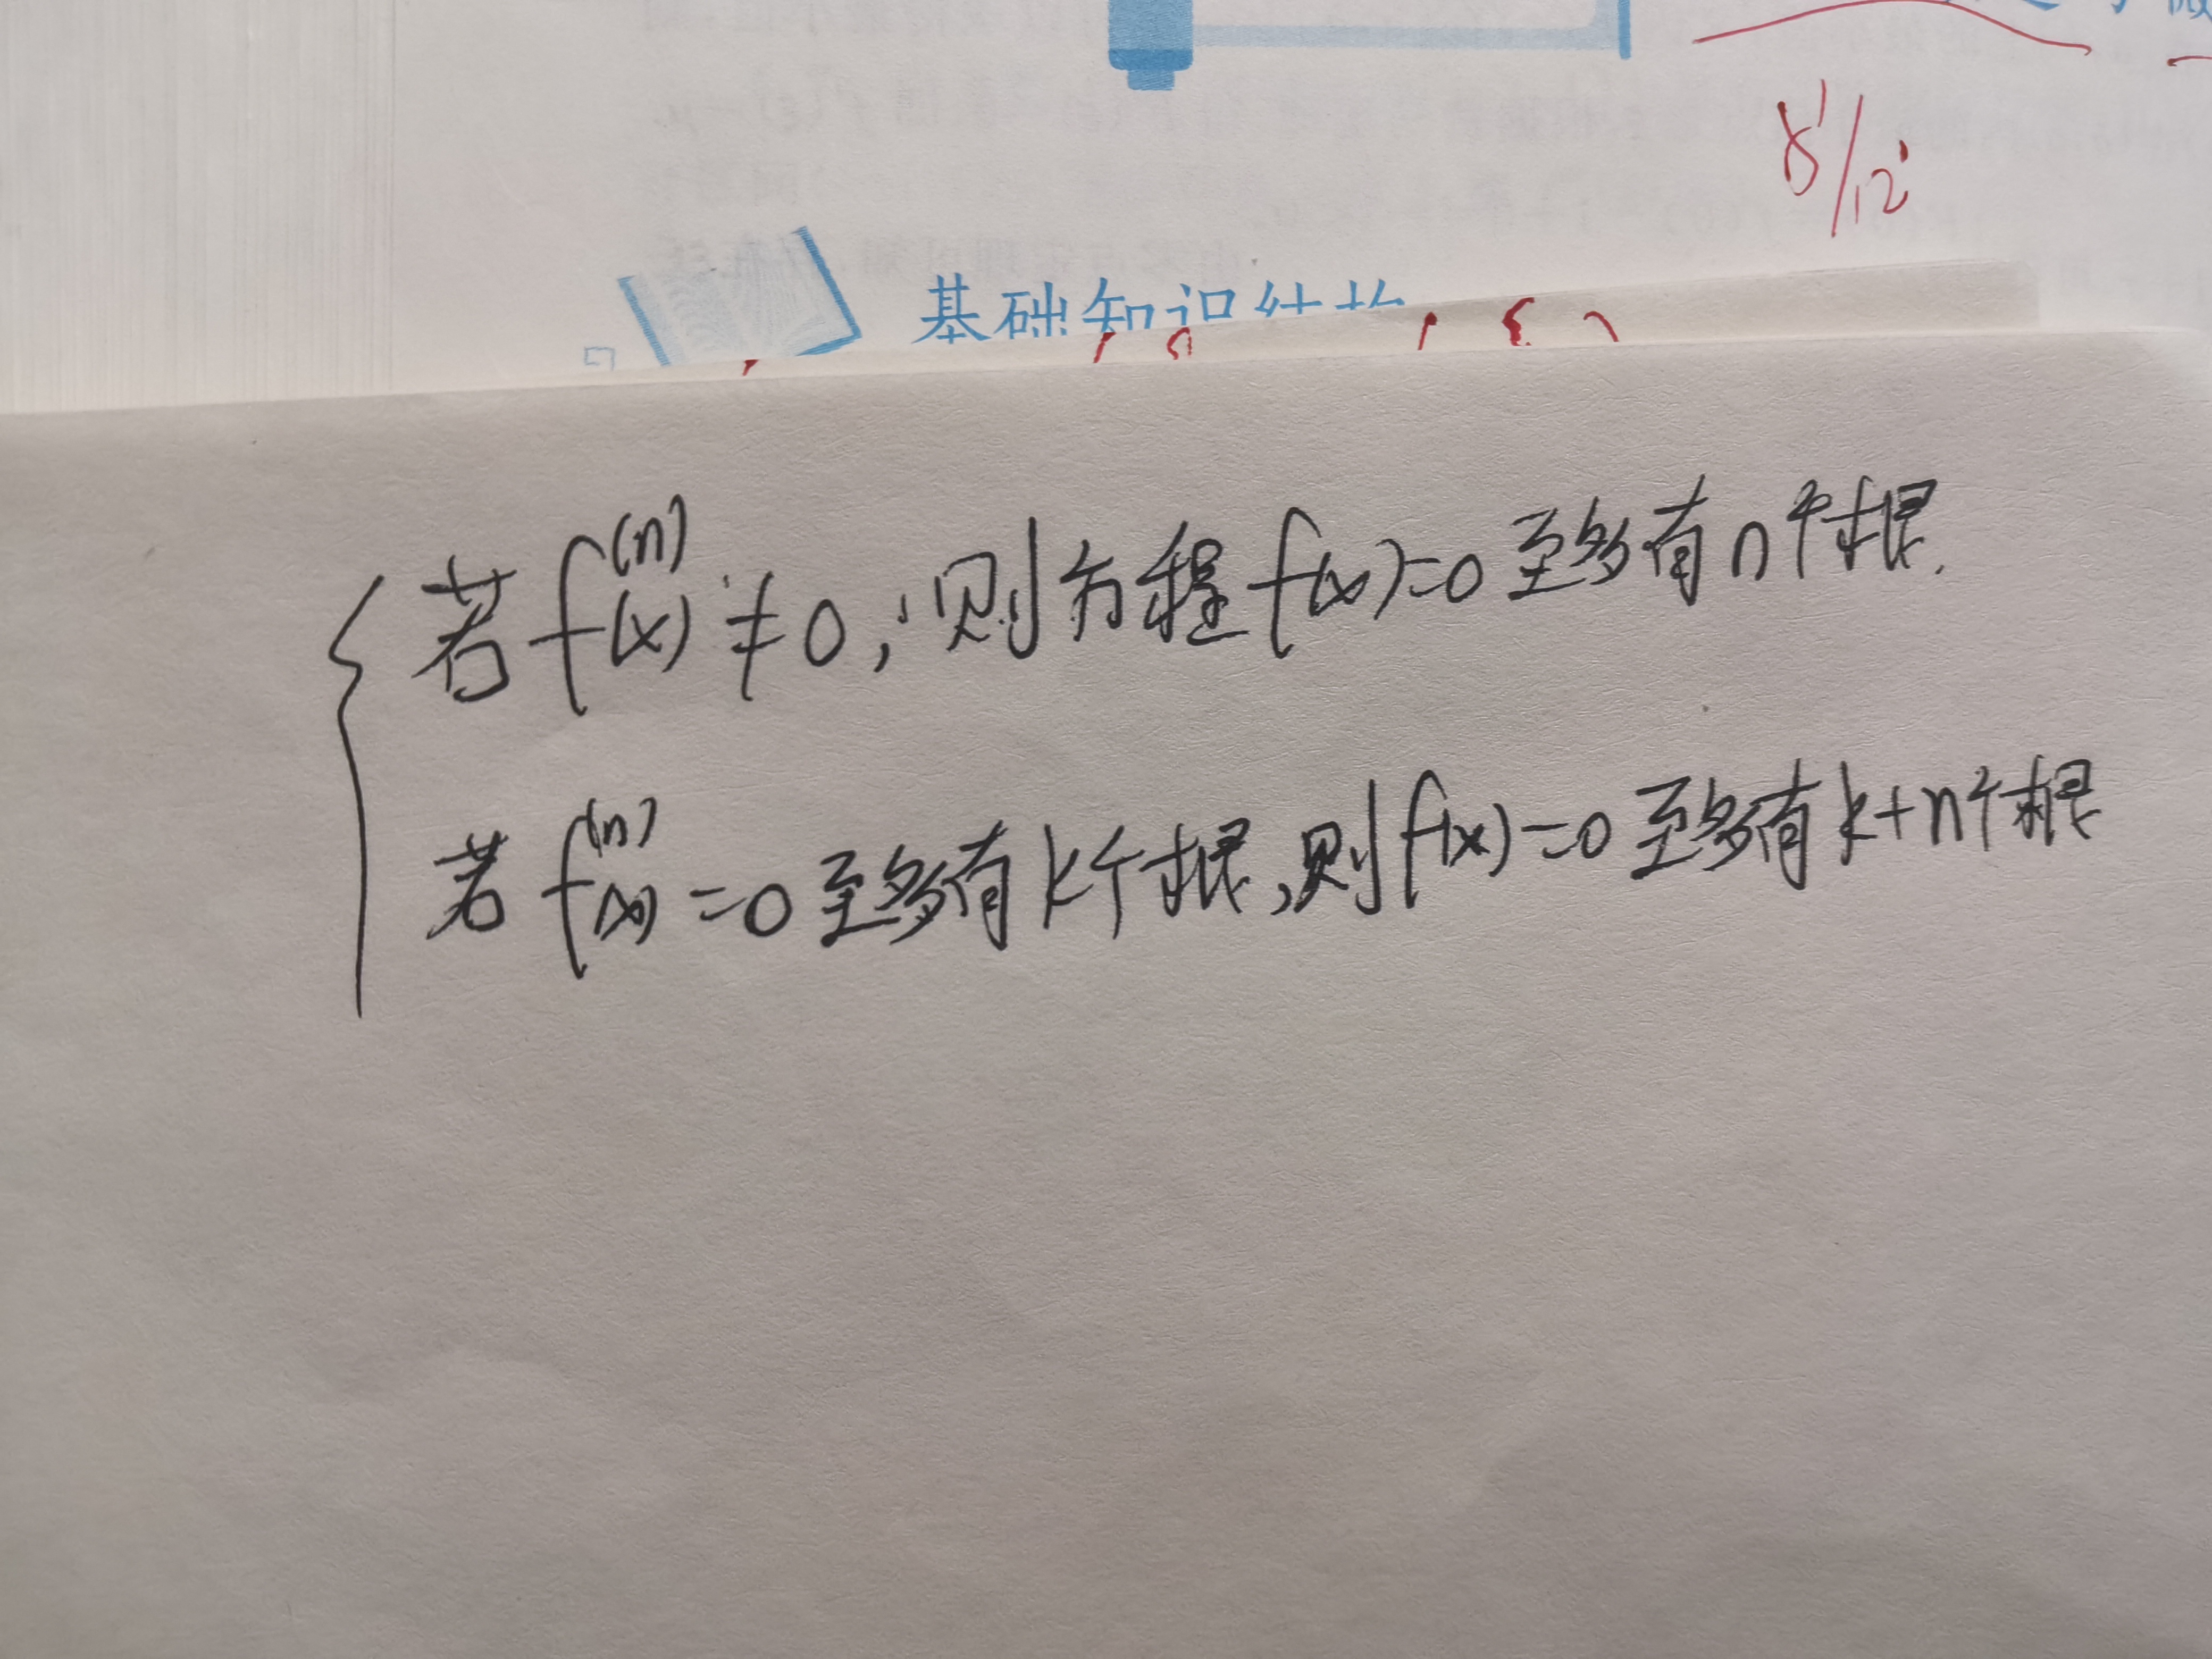 8/12
基础知识结构
若 f⁽ⁿ⁾(x) ≠ 0, 则方程 f(x)=0 至多有 n 个根.
若 f⁽ⁿ⁾(x) =0 至多有 k个根, 则 f(x)=0 至多有 k+n个根